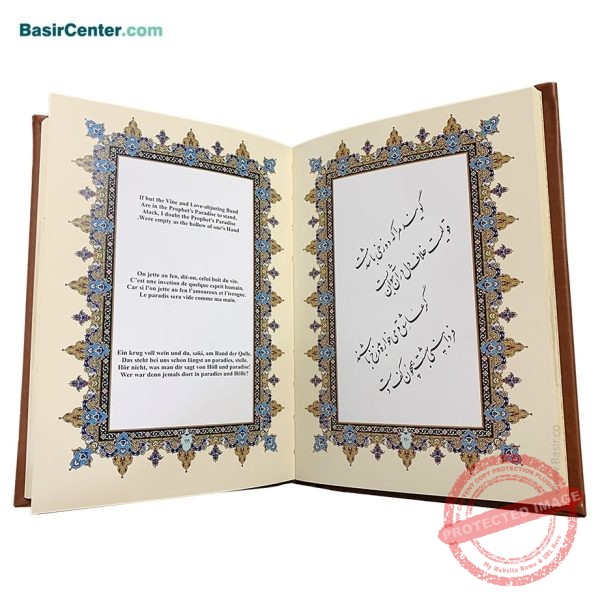 BasirCenter.com
If but the Vine and Love-abjuring Band
Are in the Prophet's Paradise to stand,
Alack, I doubt the Prophet's Paradise
,Were empty as the hollow of one's Hand
On jette au fen, dit-on, celui-boit du vin.
C'est une invetion de quelque esprit humain.
Car si l'on jette au fen l'amoureux et l'ivrogne.
Le paradis sera vide comme ma main.
Ein krug voll wein und du, saki, am Rand der Qulle.
Das steht bei uns schon längst an paradies, stelle.
Hör nicht, was man dir sagt von Höll und paradise!
Wer war denn jemals dort in paradies und Hölle?
گویند مرا که دوزخی باشد مست
قولیست خلاف دل در آن نتوان بست
گر عاشق و میخواره بدوزخ باشند
فردا بینی بهشت همچون کف دست
Basir.co
PROTECTED IMAGE
My Website Name & URL Here